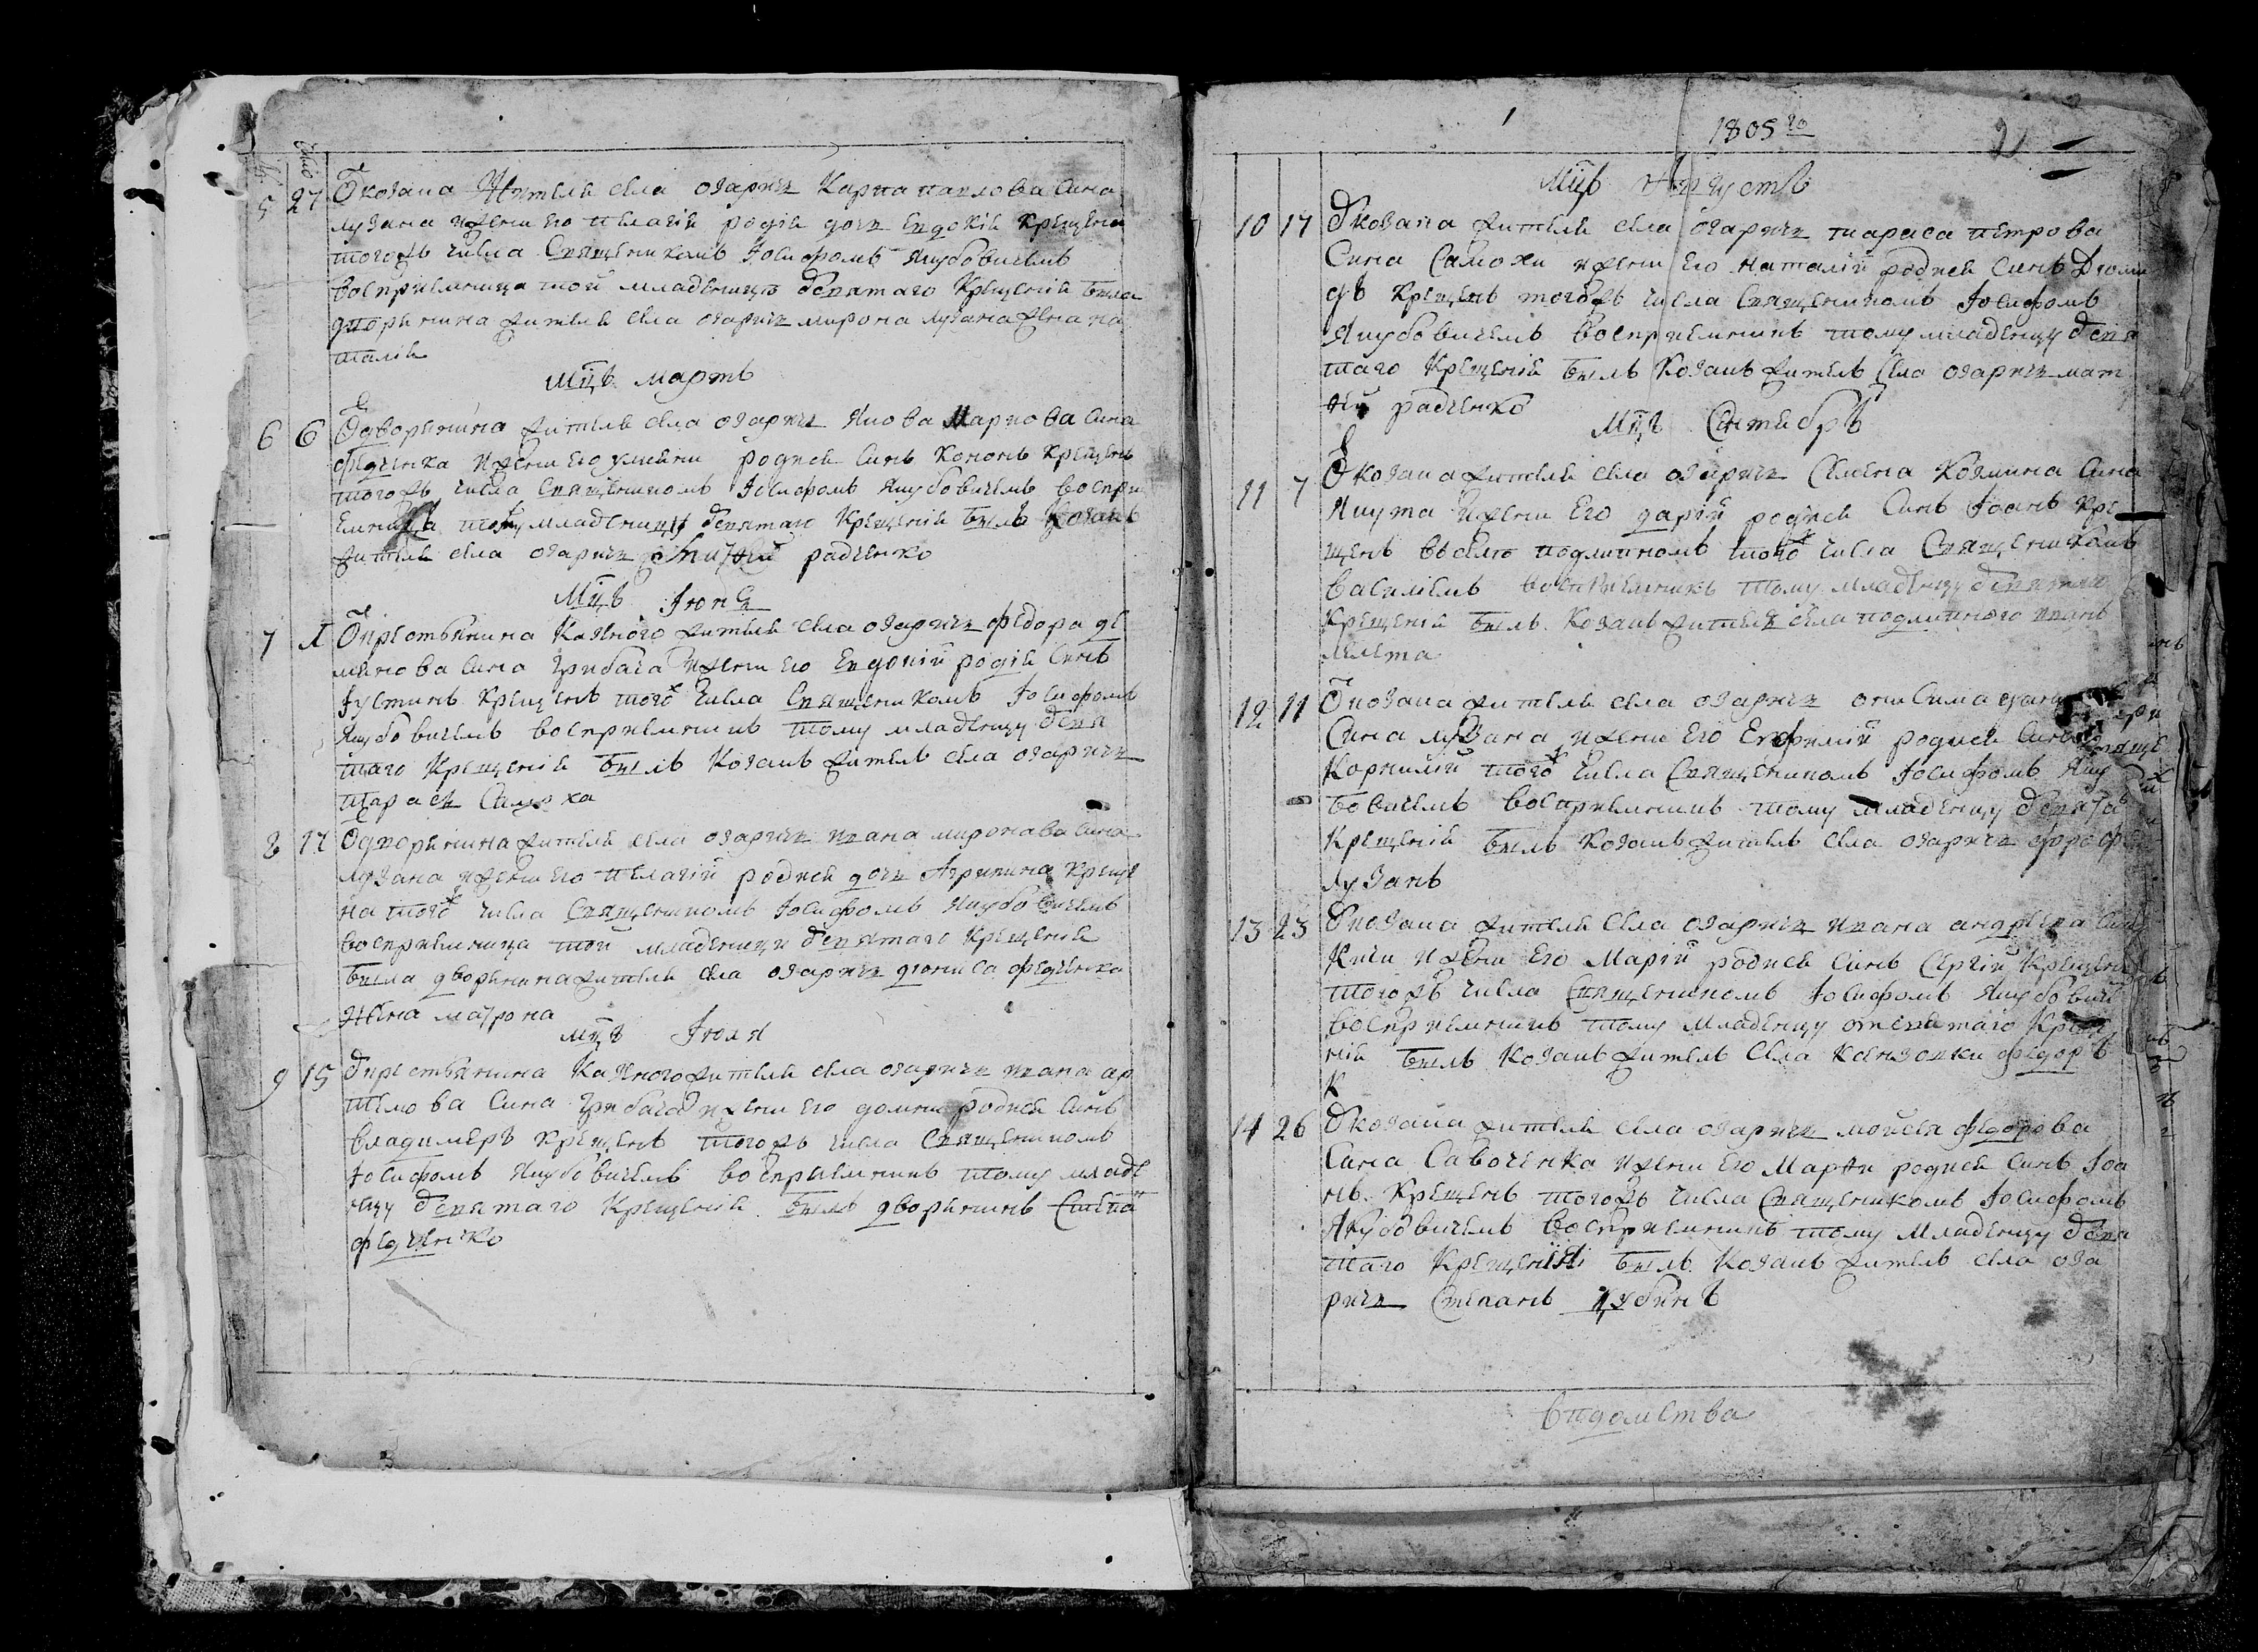 число
5 27 У козака Жителя села озаричъ Карпа павлова сина
лузана и жени его пелагіи родися дочь Евдокія крещена
тогожъ числа Священикомъ Іосифомъ Якубовичемъ
восприемница той младеници святаго крещенія била
дворянина жителя села озаричъ мирона лузана жена на
талія
Мцъ мартъ
6 6 У дворянина жителя села озаричъ Якова Маркова сина
федченка и жени его улияни родися синъ кононъ крещенъ
тогожъ числа Священикомъ Іосифомъ Якубовичемъ воспри
емника тому младенцу святаго крещенія билъ козакъ
житель села озаричъ радченко
Мцъ Іюня
7 У крестьянина казного жителя села озаричъ федора де
мянова сина грибача и жени его Евдокіи родися синъ
Іустинъ крещенъ того числа Священикомъ Іосифомъ
Якубовичемъ восприемникъ тому младенцу свя
таго крещенія билъ козакъ житель села озаричъ
тарасъ Самоха
8 12 У дворянина жителя села озаричъ ивана миронава сина
лузана и жени его пелагіи родися дочь Агрипина креще
на того числа Священикомъ Іосифомъ Якубовичемъ
восприемница той младеници святаго крещенія
била дворянина жителя села озаричъ дениса федченка
жена матрона
мцъ Іюля
9 15 У крестьянина казного жителя села озаричъ ивана ар
темова сина грибача и жени его домни родися синъ
владимеръ крещенъ тогожъ числа Священикомъ
Іосифомъ Якубовичемъ восприемникъ тому младе
нцу святаго крещенія билъ дворянинъ Степа
федченко
1805го
2
Мцъ Августъ
10 17 У козака жителя села озаричъ тараса петрова
Сина Самохи и жени его наталіи родися синъ Диоми
дъ крещенъ тогожъ числа Священикомъ Іосифомъ
Якубовичемъ восприемникъ тому младенцу свя
таго крещенія билъ козакъ житель села озаричъ мат
фей радченко
Мцъ Сентебръ
11 7 У козака жителя села озаричъ Семена козмина сина
Якута и жени его даріи родися синъ Іоанъ кре
щенъ въ селе подлипномъ того числа Священикомъ
василиемъ восприемникъ тому младенцу святаго
крещенія билъ козакъ житель села подлипного иванъ
12 11 У козака жителя села озаричъ онисима
Сина лузана и жени его Евфиміи родися синъ
корнилій того числа Священикомъ Іосифомъ Яку
бовичемъ восприемникъ тому младенцу свята
крещенія билъ козакъ житель села озаричъ
лузанъ
13 23 У козака жителя села озаричъ ивана андреева сина
и жени его Маріи родися синъ Сергій крещенъ
тогожъ числа Священикомъ Іосифомъ Якубовиче
восприемникъ тому младенцу святаго креще
нія билъ козакъ житель села федоръ
К
14 26 У козака жителя села озаричъ мойсея федорова
Сина Савоченка и жени его Марфи родися синъ Іоа
нъ крещенъ тогожъ числа Священикомъ Іосифомъ
Якубовичемъ восприемникъ тому младенцу свя
таго крещенія билъ козакъ житель села оза
ричъ Степанъ